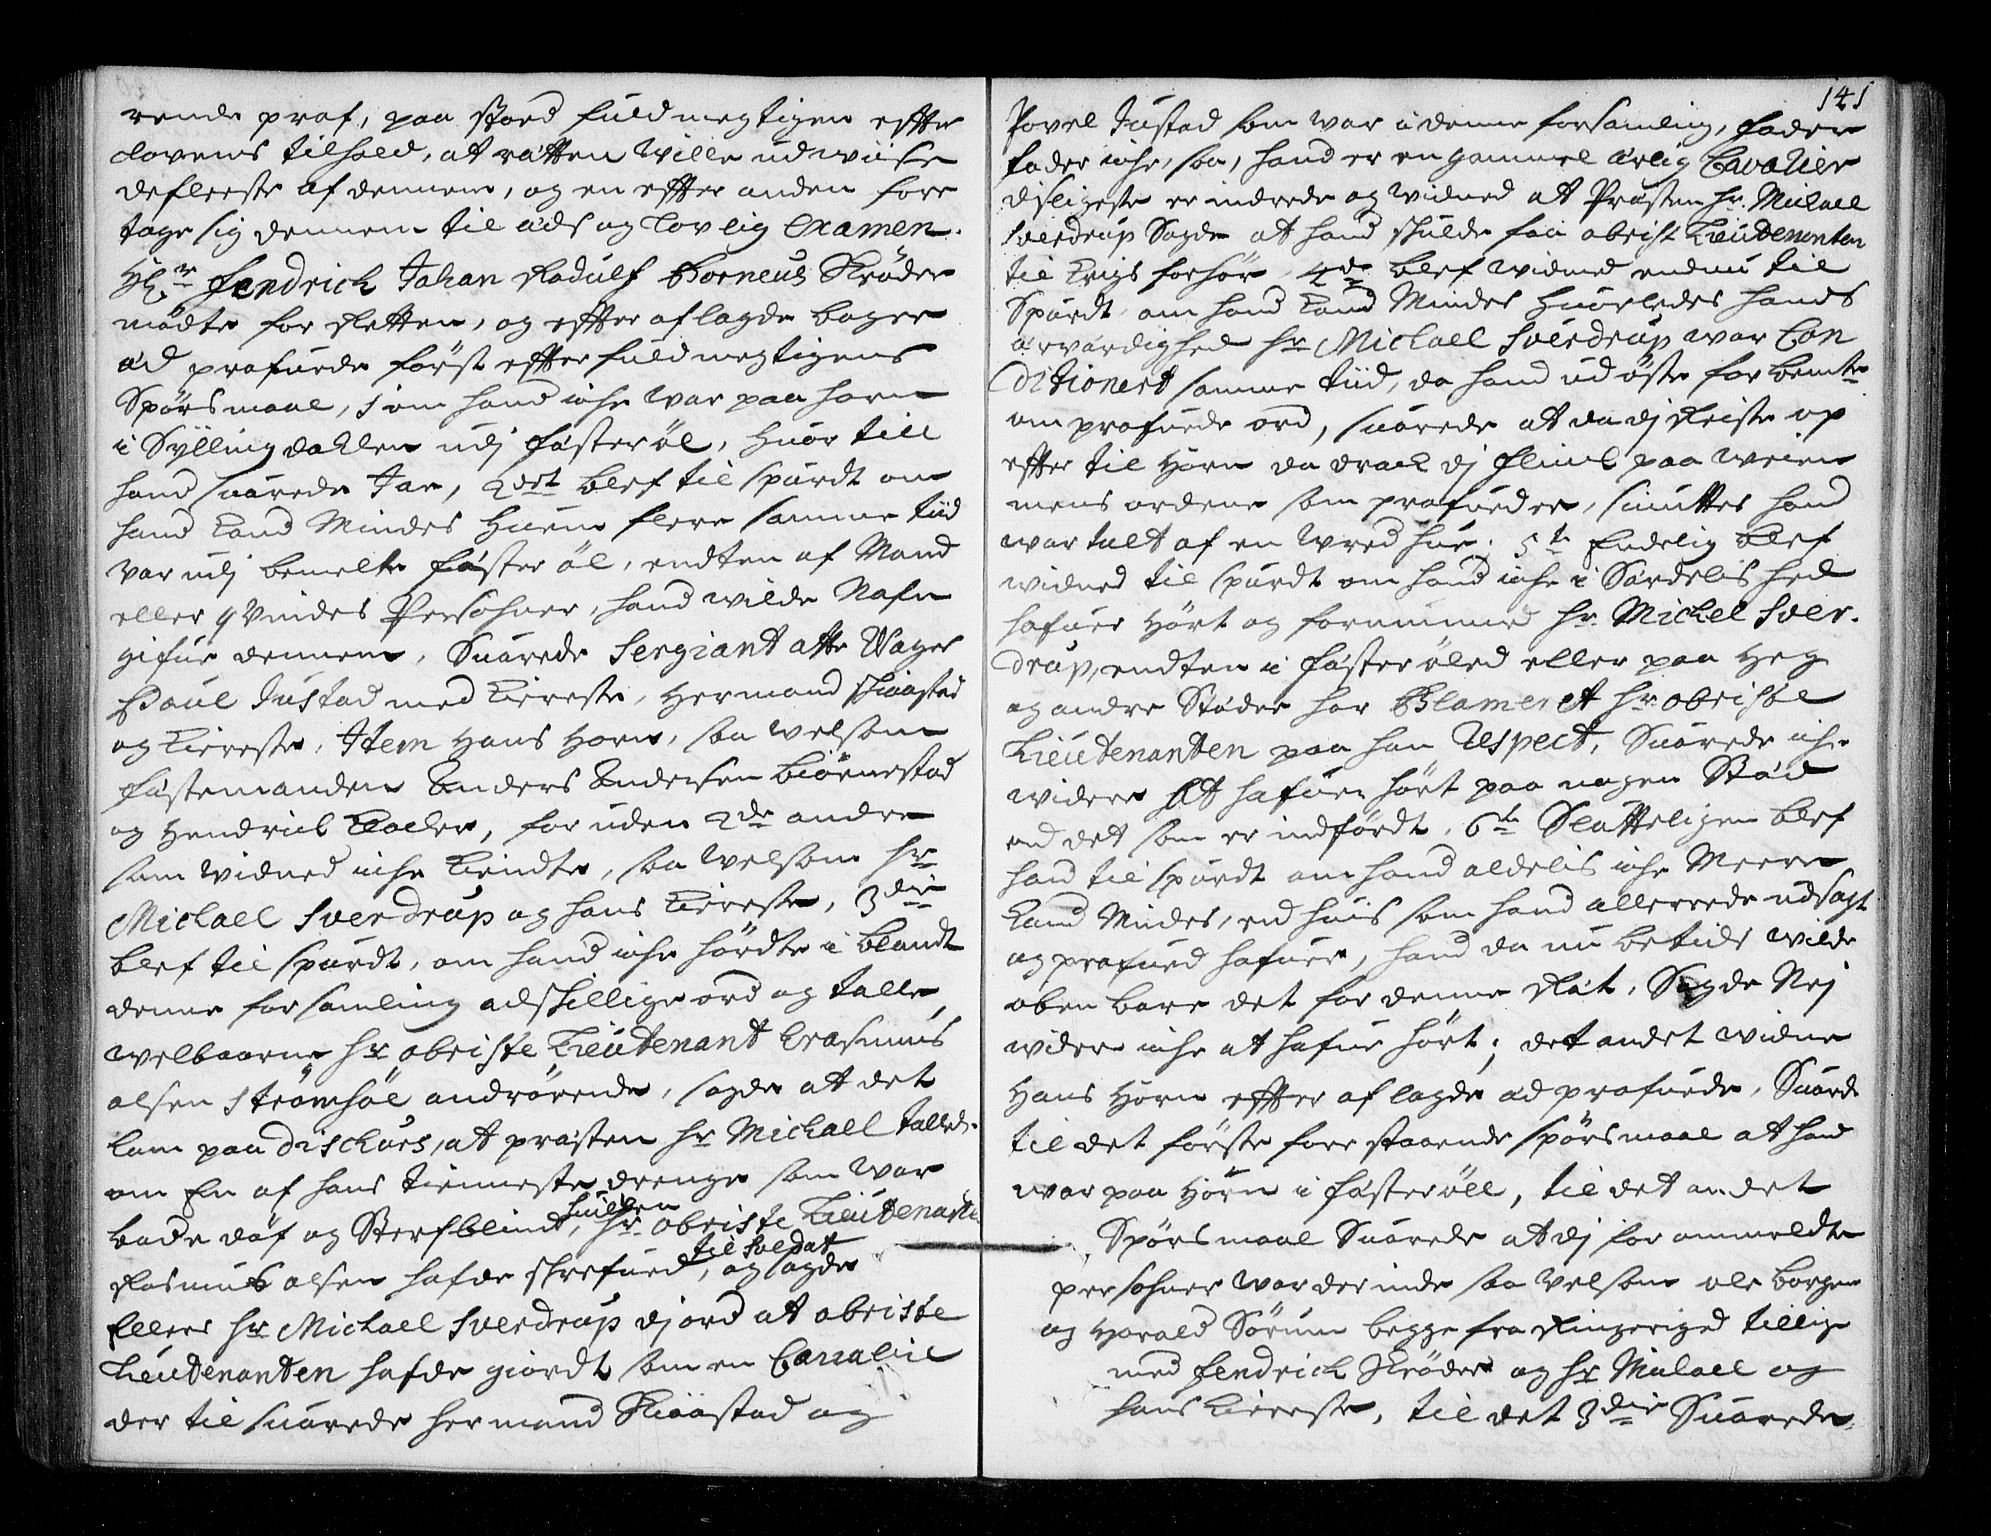 rende prof, paa stoed fuldmegtigen effter
lovens tilhold, at rætten wille udwiise
defleeste af dennem, og en effter anden fore
tage sig dennem til æds og lovlig Examen.
Hr Fendrich Johan Radulf Borneus Skrøder
mødte for Retten, og effter aflagde boger
æd profuede først effter fuldmegtigens
Spørsmaal, som hand iche war paa horn
i Syllingdahlen udj fæsterøl, huor till
hand suarede Jae, 2det blef tilspurdt om
hand kand Mindes huem flere samme tiid
var udj bemelte fæsterøl, endten af Mand
eller qvindes Persohner, hand wilde Nafn
gifue dennem, Suarede Sergiant atte Wager
Poul Justad med kiereste, Hermand skiaastad
og kiereste, Item Hans Horn, saa velsom
fæstemanden Anders Andersen biørnestad
og Hendrich, for uden 2de andre
som widned iche kiendte, saa velsom hr
Michael Sverdrup og hans kiereste, 3die
blef tilspurdt, om hand iche hørdte i blandt
denne forsamling adskillige ord og talle,
welbaarne hr obriste Lieutenant Erasmus
olsen Strømsøe andrørende, sagde att det
kom paa dischurs, at præsten hr Michaell talled
om En af hans tienneste drenge som war
bode døf og Sterfblind, huilken hr obriste Lieutenant
Rasmus olsen hafde skrefued til soldat, og sagde
Ellers hr Michael Sverdrup dj ord at obriste
Lieutenanten hafde giordt som en Carnalie
der til suarede hermand Skiaastad og
141
Povel Justad som war i denne forsamling, fader
fader iche, saa, hand er en gammel ærlig Cavalier
disligeste erindrede og widned att Præsten hr Michael
Sverdrup Sagde at hand skulde faa obrist Lieutenanten
til krigs forhør, 4de blef widned endnu til
Spurdt om hand kand Mindes huorledes hands
ærværdighed hr Michael Sverdrup war Con
ditionert samme tiid, da hand udøste for bemte
om profuede ord, suarede at da dj Reiste op
effter til Horn da drack dj flinck paa weien
mens ordene som profueder, siuntes hand
war talt af en wred hue. 5te Endelig blef
widned tilspurdt om hand iche i Særdelis hed
hafuer hørt og fornummed hr. Michel Sver-
drup, endten i fæsterøled eller paa Heg
og andre Støder har Blameret hr obriste
Lieutenanten paa han Respect, Suarede iche
widere At hafuer hørt paa nogen Stæd
end det som er indført. 6te Sluttelligen blef
hand tilspurdt om hand aldelis iche Meere
kand Mindes, end huis som hand allerrede udsagt
og profued hafuer, hand da nu betids wilde
obenbare det for denne Ræt, Sagde Nej
widere iche at hafue hørt; det andet widne
Hans Horn effter aflagde æd profuede, Suarde
til det første fore staaende spørsmaal at hand
war paa Horn i fæsterøll, til det andet
Spørsmaal Suarede at dj for ommeldte
persohner war der inde saa velsom ole borger
og Harald Sørum begge fra Ringeriged tillige
med fendrich Skrøder og hr Michael og
hans kiereste, til det 3die Suarede